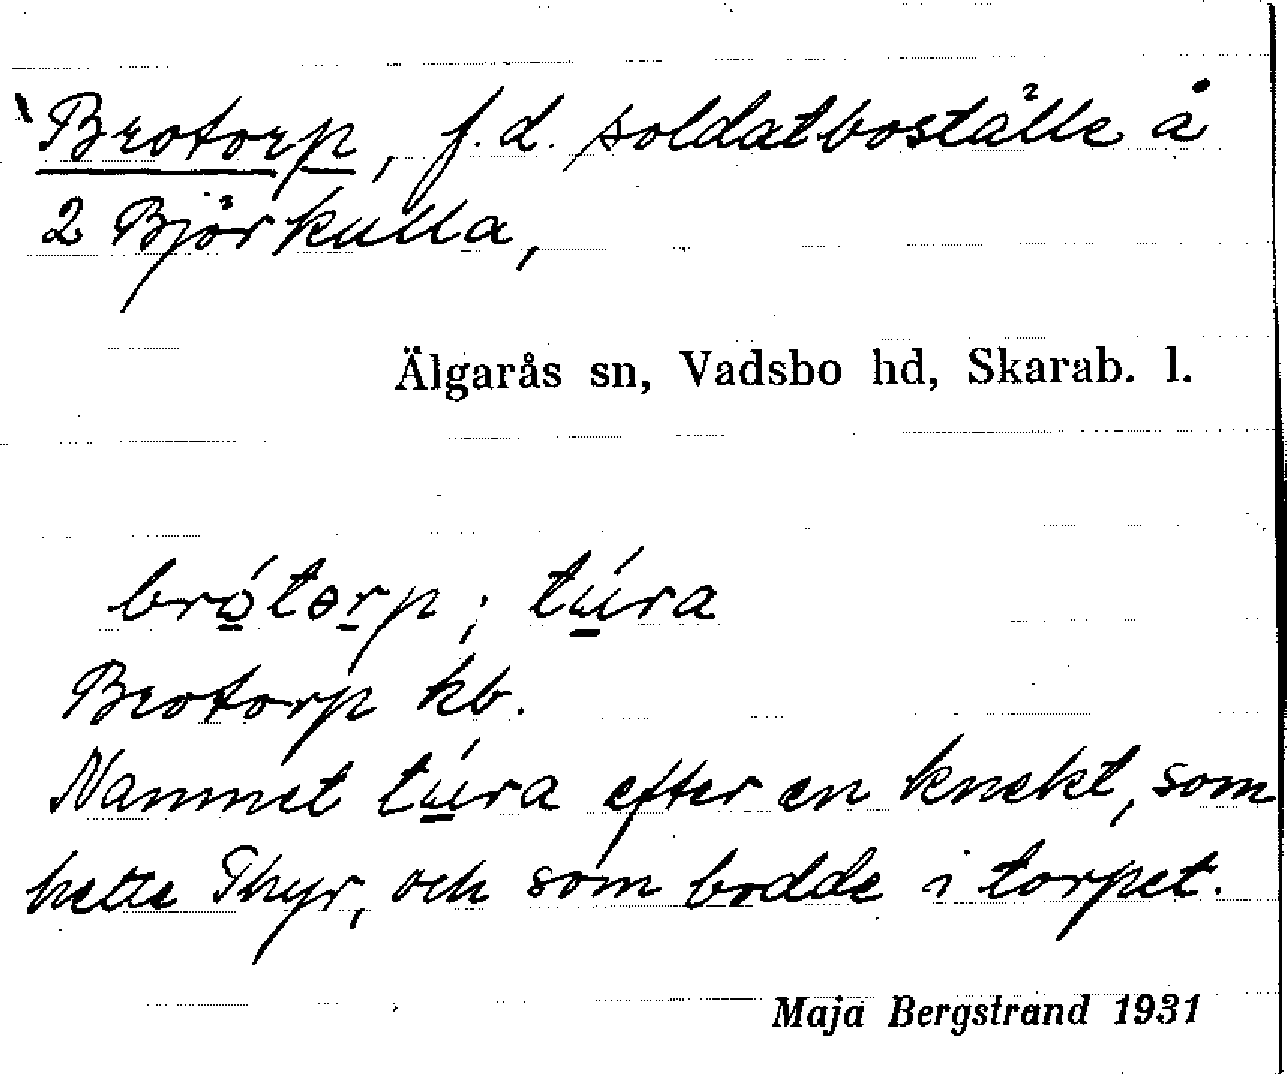 Brotorp, f.d. soldatboställe å
2 Björkulla,
Älgarås sn, Vadsbo hd, Skarab. l.
brótorp; túra
Brotorp kb.
Namnet túra efter en knekt, som
hette Thyr, och som bodde i torpet.
Maja Bergstrand 1931